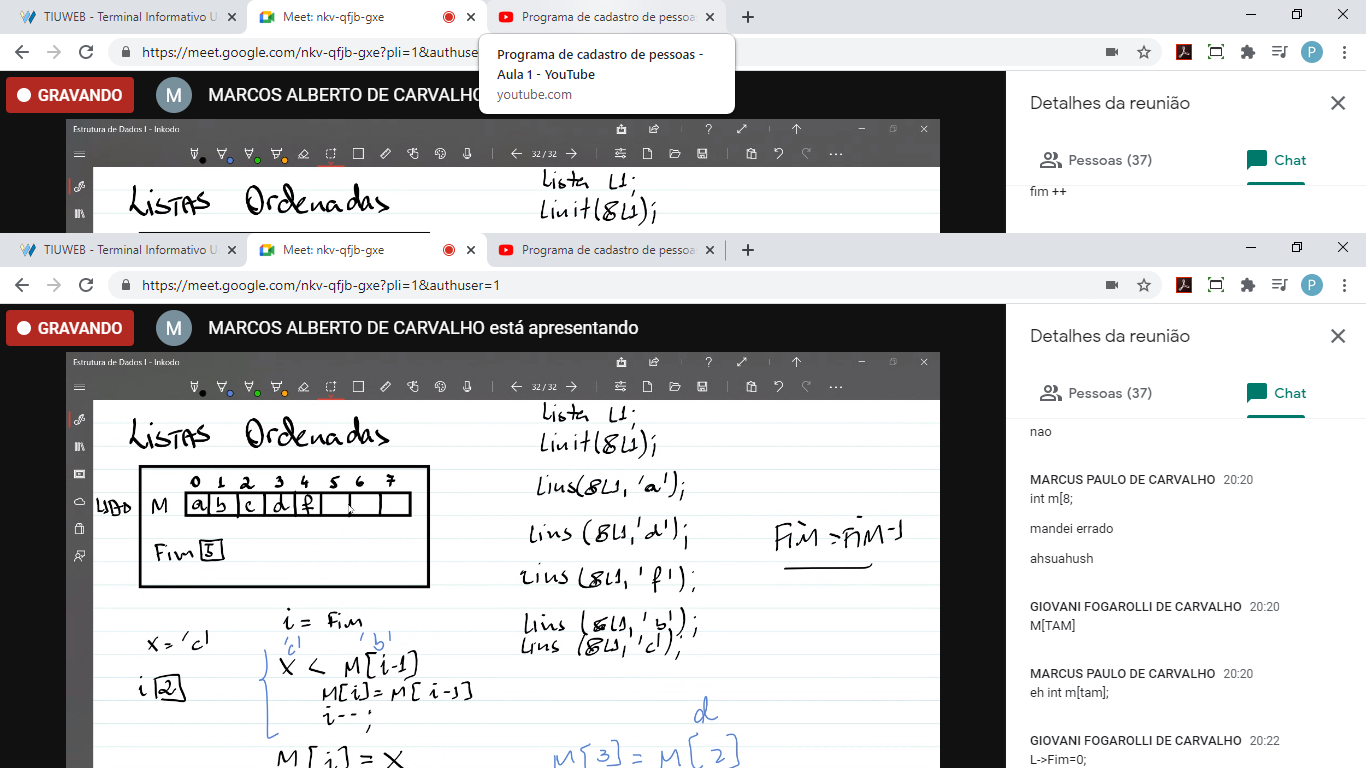 TIUWEB - Terminal Informativo U
Meet: nkv-qfjb-gxe
Programa de cadastro de pessoa
https://meet.google.com/nkv-qfjb-gxe?pli=1&authuse
Programa de cadastro de pessoas -
Aula 1 - YouTube
youtube.com
P
GRAVANDO
M
MARCOS ALBERTO DE CARVALHO
Detalhes da reunião
Estrutura de Dados I - Inkodo
32/32
Pessoas (37)
Chat
fim ++
Listas Ordenadas
Lista L1;
Linit(&L1);
TIUWEB - Terminal Informativo U
Meet: nkv-qfjb-gxe
Programa de cadastro de pessoa
https://meet.google.com/nkv-qfjb-gxe?pli=1&authuser=1
P
GRAVANDO
M
MARCOS ALBERTO DE CARVALHO está apresentando
Detalhes da reunião
Estrutura de Dados I - Inkodo
32/32
Pessoas (37)
Chat
Listas Ordenadas
0 1 2 3 4 5 6 7
M a b c d f
Fim 5
i = Fim
x = 'c'
'c' 'b'
x < M[i-1]
i 2
M[i] = M[i-1]
i--;
M[i] = x
Lista L1;
Linit(&L1);
Lins(&L1, 'a');
Lins (&L1, 'd');
Lins (&L1, 'f');
Lins (&L1, 'b');
Lins (&L1, 'c');
Fim = Fim-1
d
M[3] = M[2]
nao
MARCUS PAULO DE CARVALHO 20:20
int m[8;
mandei errado
ahsuahush
GIOVANI FOGAROLLI DE CARVALHO 20:20
M[TAM]
MARCUS PAULO DE CARVALHO 20:20
eh int m[tam];
GIOVANI FOGAROLLI DE CARVALHO 20:22
L->Fim=0;